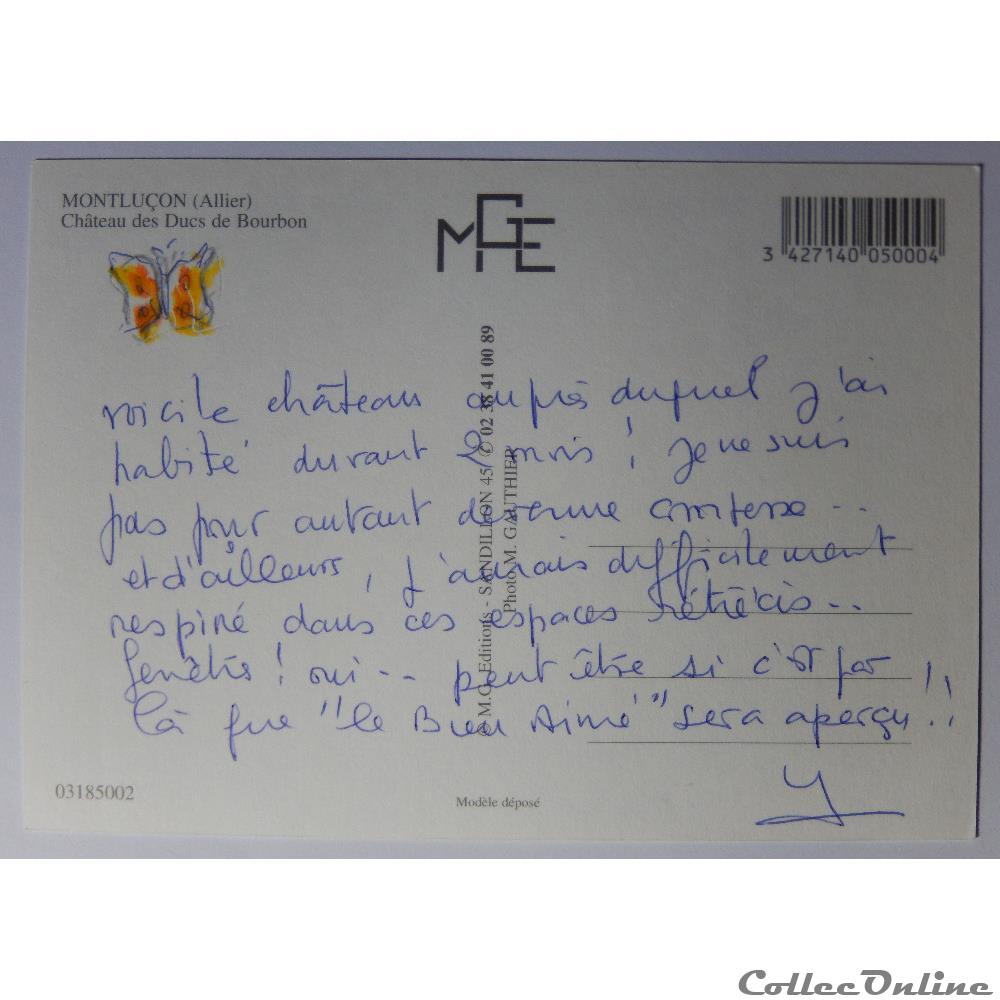 MONTLUÇON (Allier)
Château des Ducs de Bourbon
MGE
3 427140 050004
voici le château auprès duquel j'ai
habité durant 2 mois ! je ne suis
pas pour autant devenue comtesse ..
et d'ailleurs, j'aurais difficilement
respiré dans ces espaces rétrécis ..
fenêtres ! oui .. peut être si c'est par
là que "le Bien Aimé" sera aperçu !!
Y
© M.G. Editions - SANDILLON 45 ✆ 02 38 41 00 89
Photo M. GAUTHIER
03185002
Modèle déposé
CollecOnline